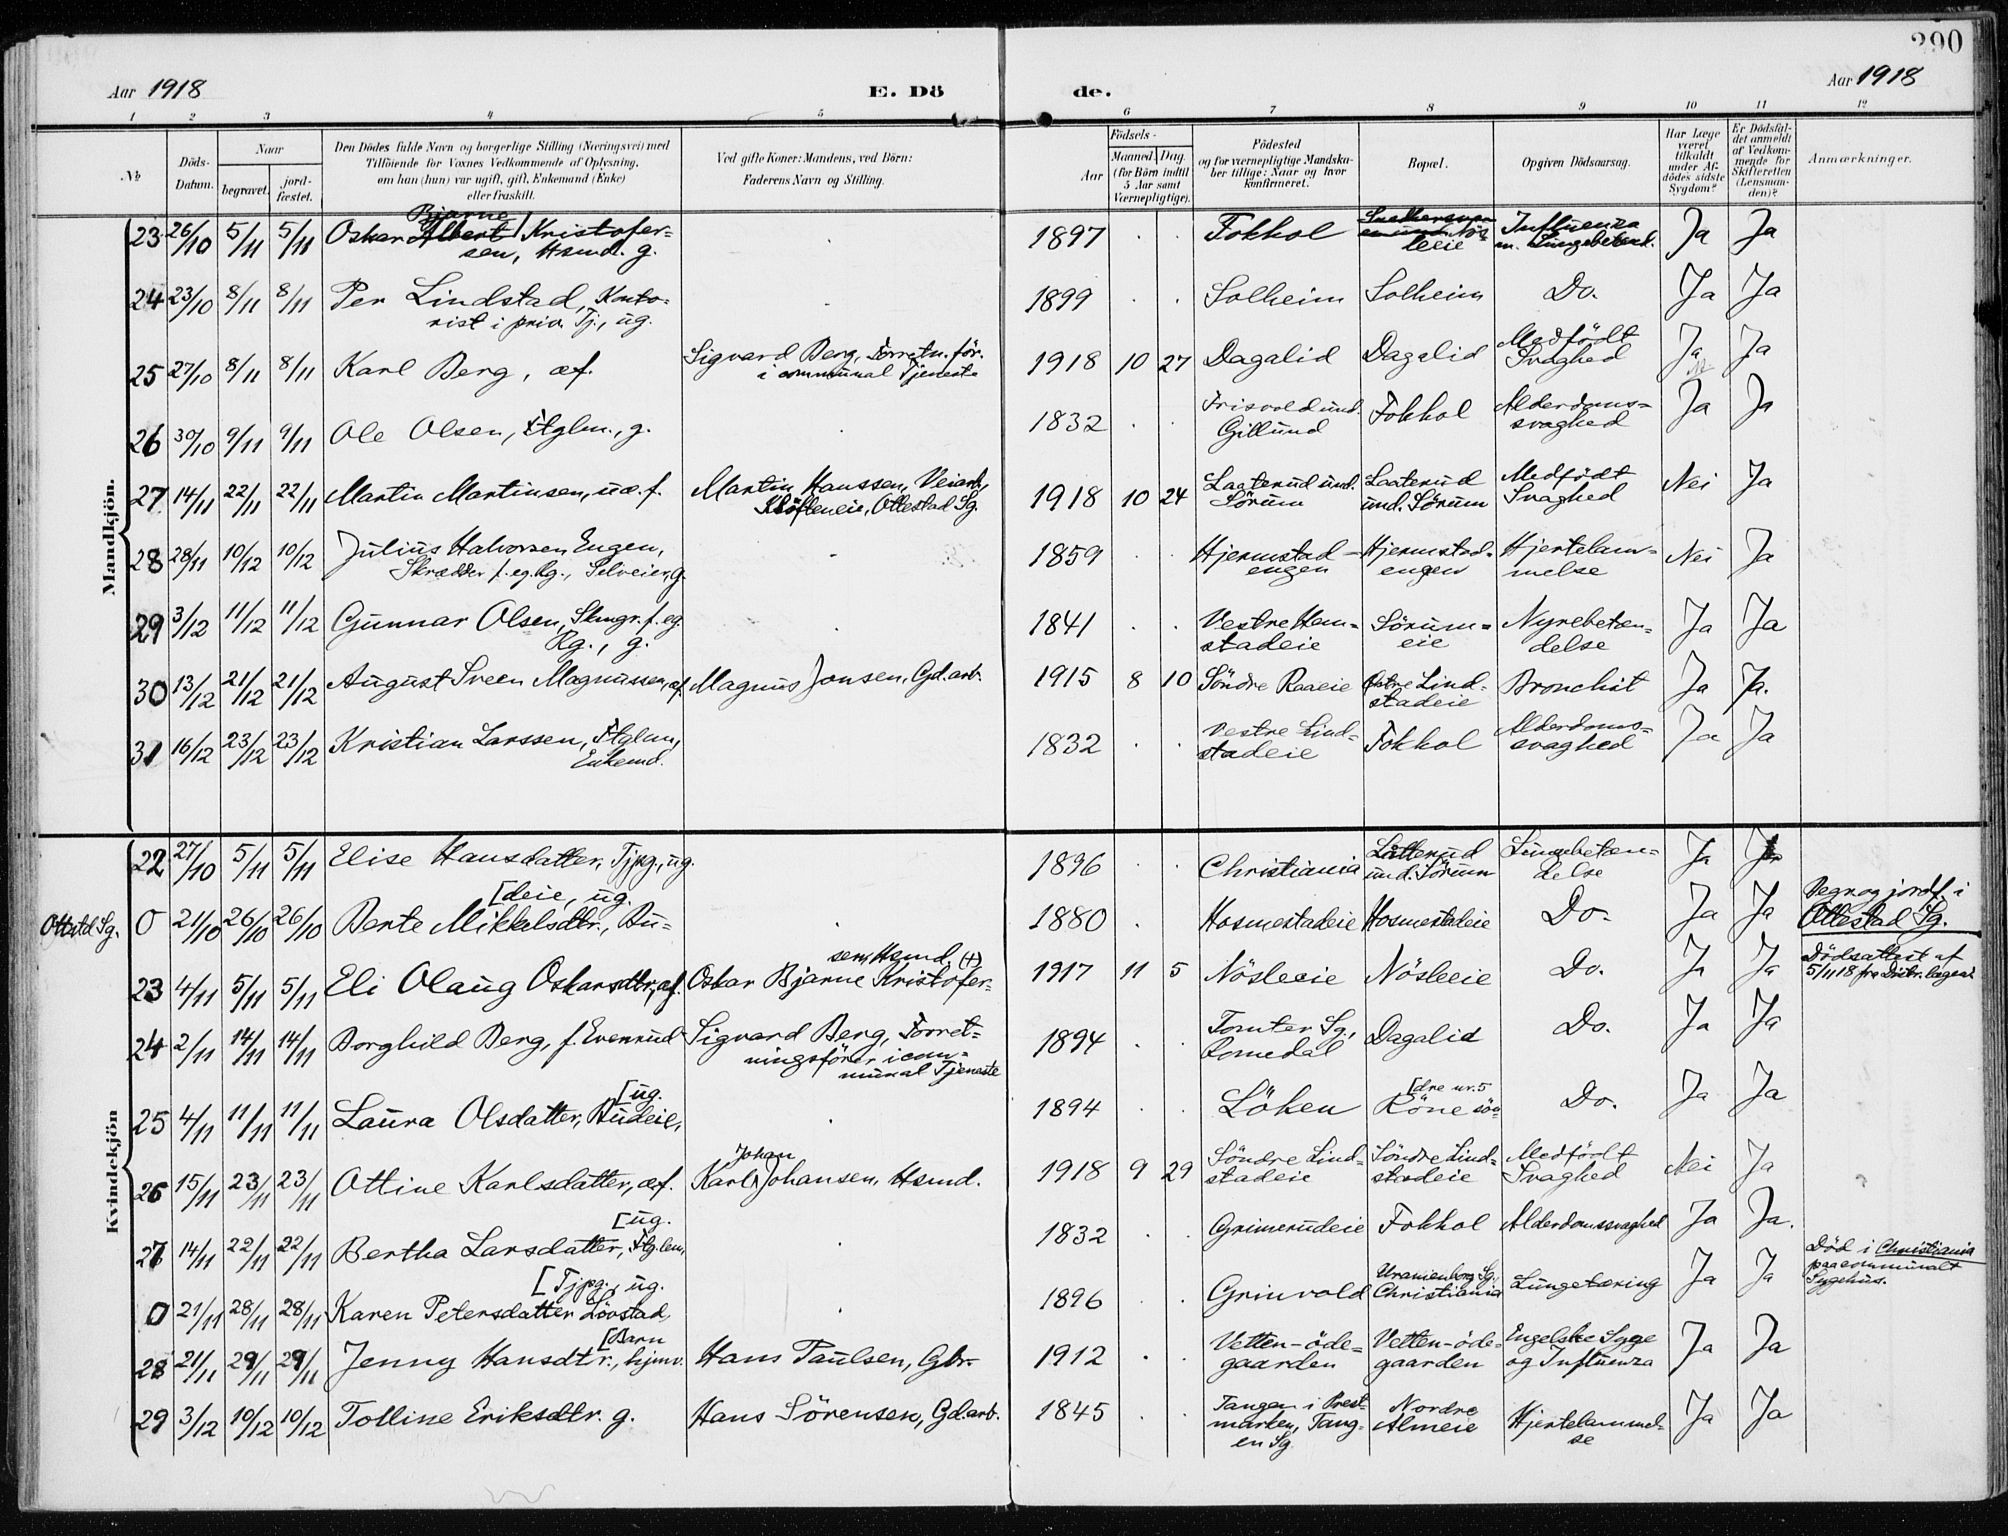 290
Aar 1918 E. Dö de. Aar 1918
1 2 3 4 5 6 7 8 9 10 11 12
№
Döds-Datum.
Naar
begravet.
jord-fæstet.
Den Dödes fulde Navn og borgerlige Stilling (Næringsvei) med
Tilföiende for Voxnes Vedkommende af Oplysning,
om han (hun) var ugift, gift, Enkemand (Enke)
eller fraskilt.
Ved gifte Koner: Mandens, ved Börn:
Faderens Navn og Stilling.
Födsels-
Aar
Maaned. Dag.
(for Börn indtil 5 Aar samt Værnepligtige).
Födested
og for værnepligtige Mandska-
ber tillige: Naar og hvor
konfirmeret.
Bopæl.
Opgiven Dödsaarsag.
Har Læge været tilkaldt under Af-dödes sidste Sygdom?
Er Dödsfal-det anmeldt af Vedkom-mende for Skifteretten (Lensman-den)?
Anmærkninger.
Mandkjön.
23 26/10 5/11 5/11 Oskar Albert Bjarne Kristofer-
sen, Hsmd. g. 1897 Fokhol leeie Influenza
m. Lungebetænd. Ja Ja
24 23/10 8/11 8/11 Per Lindstad, Konto-
rist i priv. Tj., ug. 1899 Solheim Solheim Do. Ja Ja
25 27/10 8/11 8/11 Karl Berg, æf. Sigvard Berg, Forretn. för.
i communal Tjeneste 1918 10 27 Dagalid Dagalid Medfödt
Svaghed Ja Ja
26 30/10 9/11 9/11 Ole Olsen, Ftglm., g. 1832 Frisvold und.
Gillund Fokhol Alderdoms-
svaghed Ja Ja
27 14/11 22/11 22/11 Martin Martinsen, uæ. f. Martin Hanssen, Veiarb.,
Klöfteneie, Ottestad Sg. 1918 10 24 Laaterud und.
Sörum Laaterud
und. Sörum Medfödt
Svaghed Nei Ja
28 28/11 10/12 10/12 Julius Halvorsen Engen,
Skrædder f. eg. Rg., Selveier, g. 1859 Hjermstad-
engen Hjermstad-
engen Hjertelam-
melse Nei Ja
29 3/12 11/12 11/12 Gunnar Olsen, Skmgr. f. eg.
Rg., g. 1841 Vestre Hem-
stadeie Sörum-
eie Nyrebetæn-
delse Ja Ja
30 13/12 21/12 21/12 August Sveen Magnussen, æf. Magnus Jonsen, Gd. arb. 1915 8 10 Söndre Raaeie Östre Lind-
stadeie Bronchit Ja Ja.
31 16/12 23/12 23/12 Kristian Larssen, Ftglm,
Enkemd. 1832 Vestre Lind-
stadeie Fokhol Alderdoms-
svaghed Ja Ja
Kvindekjön
22 27/10 5/11 5/11 Elise Hansdatter, Tjpg., ug. 1896 Christiania Låtterud
und. Sörum Lungebetæn-
delse Ja Ja
Ottstd Sg. 0 21/10 26/10 26/10 Berte Mikkelsdtr., Bu-
[deie, ug. 1880 Hosmestadeie Hosmestadeie Do. Ja Ja Begr. og jordf. i
Ottestad Sg.
23 4/11 5/11 5/11 Eli Olaug Oskarsdtr, æf. Oskar Bjarne Kristofer-
sen, Hsmd. (+) 1917 11 5 Nösleeie Nösleeie Do. Ja Ja Dödsattest af
5/11 18 fra Distr. lægen.
24 2/11 14/11 14/11 Borghild Berg, f. Evenrud Sigvard Berg, Forret-
ningsförer i com-
munal Tjeneste 1894 Tomter Sg.,
Romedal Dagalid Do. Ja Ja
25 4/11 11/11 11/11 Laura Olsdatter, Budeie,
[ug. 1894 Löken Röne sön-
[dre nr. 5 Do. Ja Ja
26 15/11 23/11 23/11 Ottine Karlsdatter, æf. Karl Johan Johansen, Hsmd. 1918 9 29 Söndre Lind-
stadeie Söndre Lind-
stadeie Medfödt
Svaghed Nei Ja
27 14/11 22/11 22/11 Bertha Larsdatter, Ftg. lem,
[ug. 1832 Grimerudeie Fokhol Alderdomssvaghed Ja Ja.
0 21/11 28/11 28/11 Karen Petersdatter Lövstad,
[Tjpg., ug. 1896 Grinvold Uranienborg Sg.,
Christiania Lungetæring Ja Ja Död i Christiania
paa communalt
Sygehus.
28 21/11 29/11 29/11 Jenny Hansdtr., hjmv.
[Barn Hans Paulsen, Gbr. 1912 Vetten-öde-
gaarden Vetten-öde-
gaarden Engelske Syge
og Influenza Ja Ja
29 3/12 10/12 10/12 Tolline Eriksdtr. g. Hans Sörensen, Gd. arb. 1845 Tangen i Prest-
marken, Tang-
en Sg. Nordre
Almeie Hjertelammel-
se Ja Ja